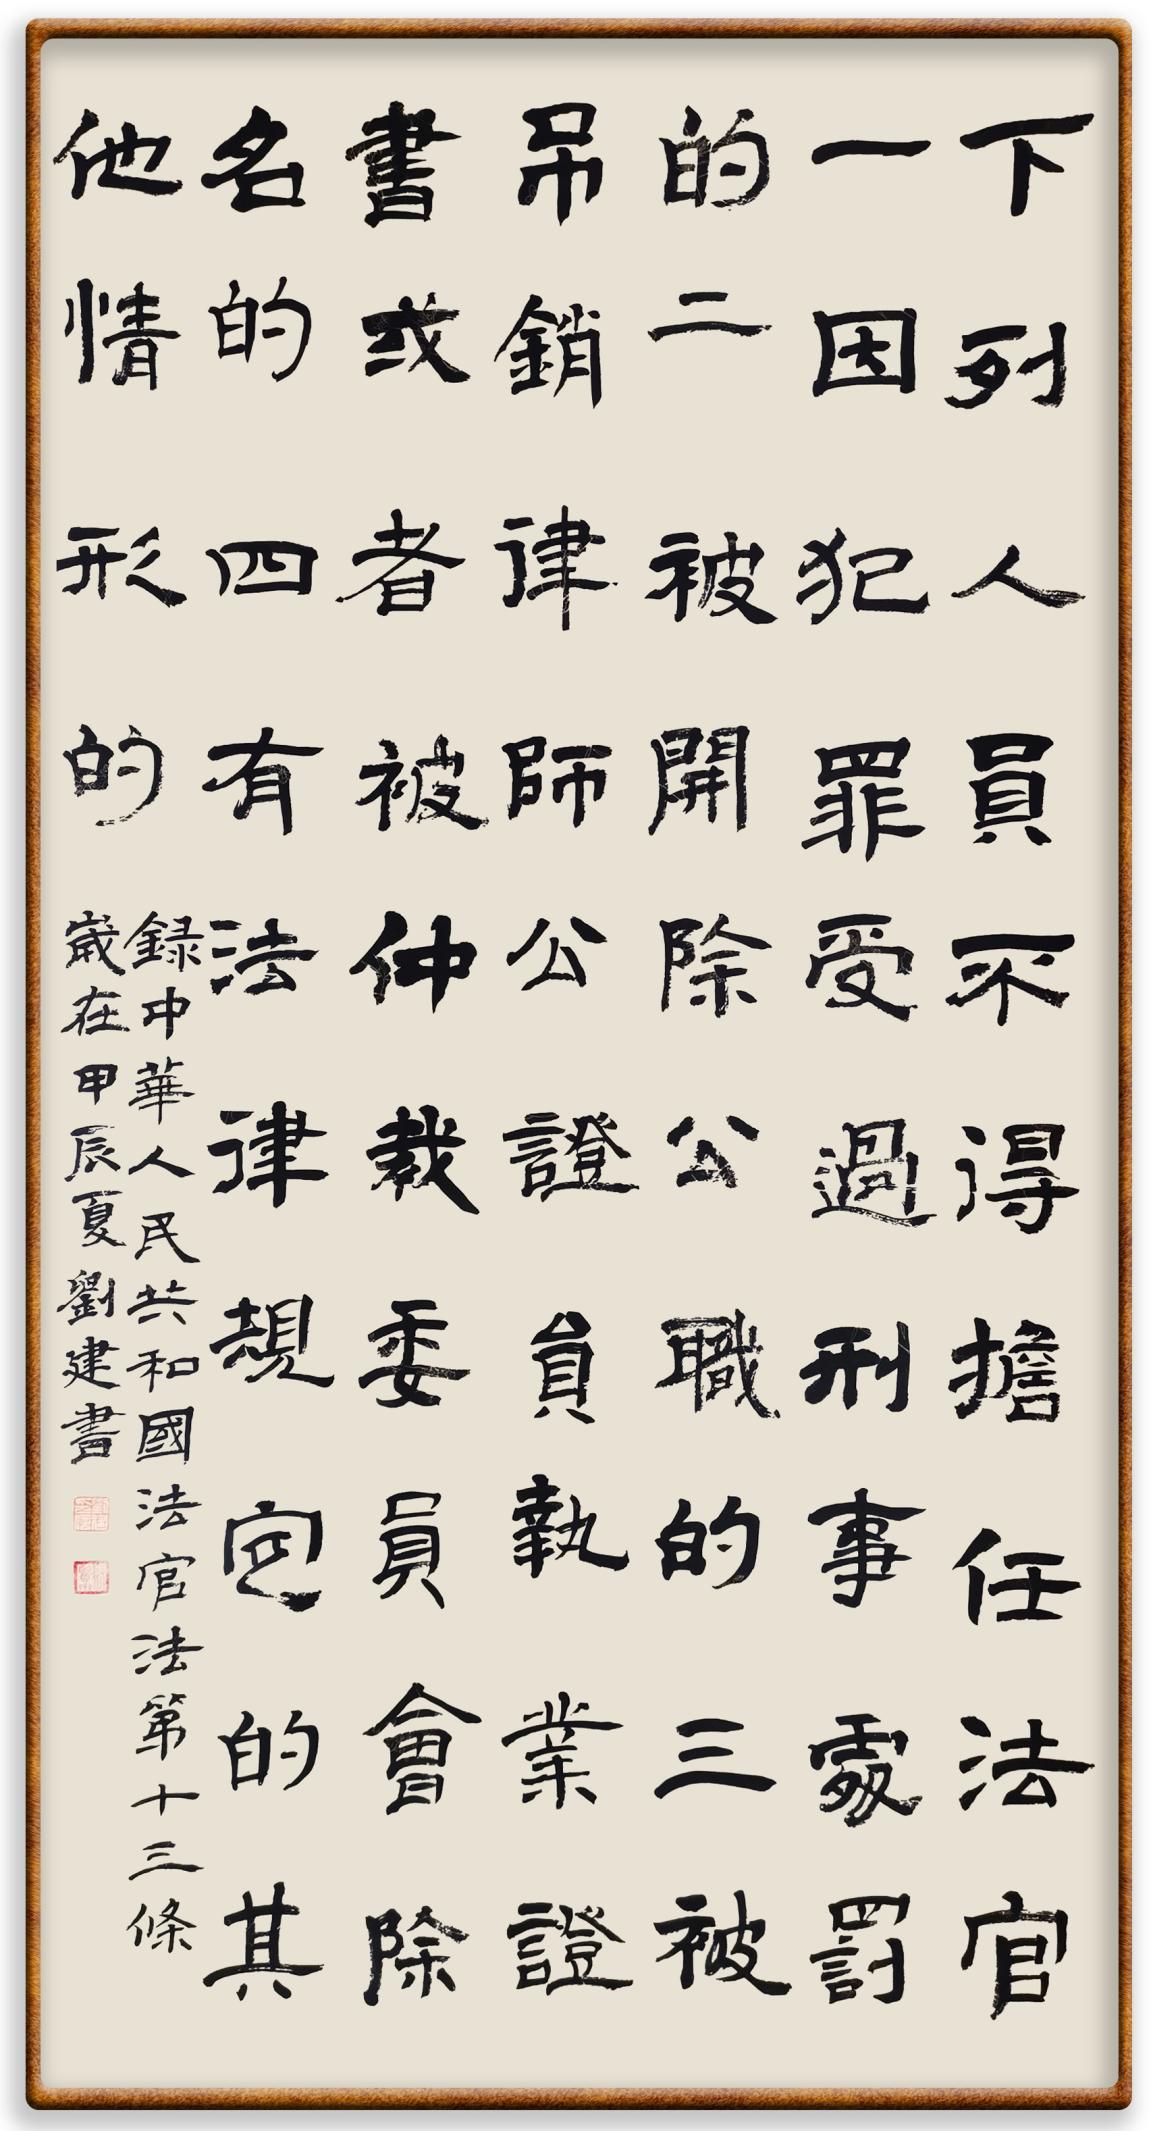 下列人員不得擔任法官
一因犯罪受過刑事處罰
的二被開除公職的三被
吊銷律師公證員執業證
書或者被仲裁委員會除
名的四有法律規定的其
他情形的
錄中華人民共和國法官法第十三條
歲在甲辰夏劉建書